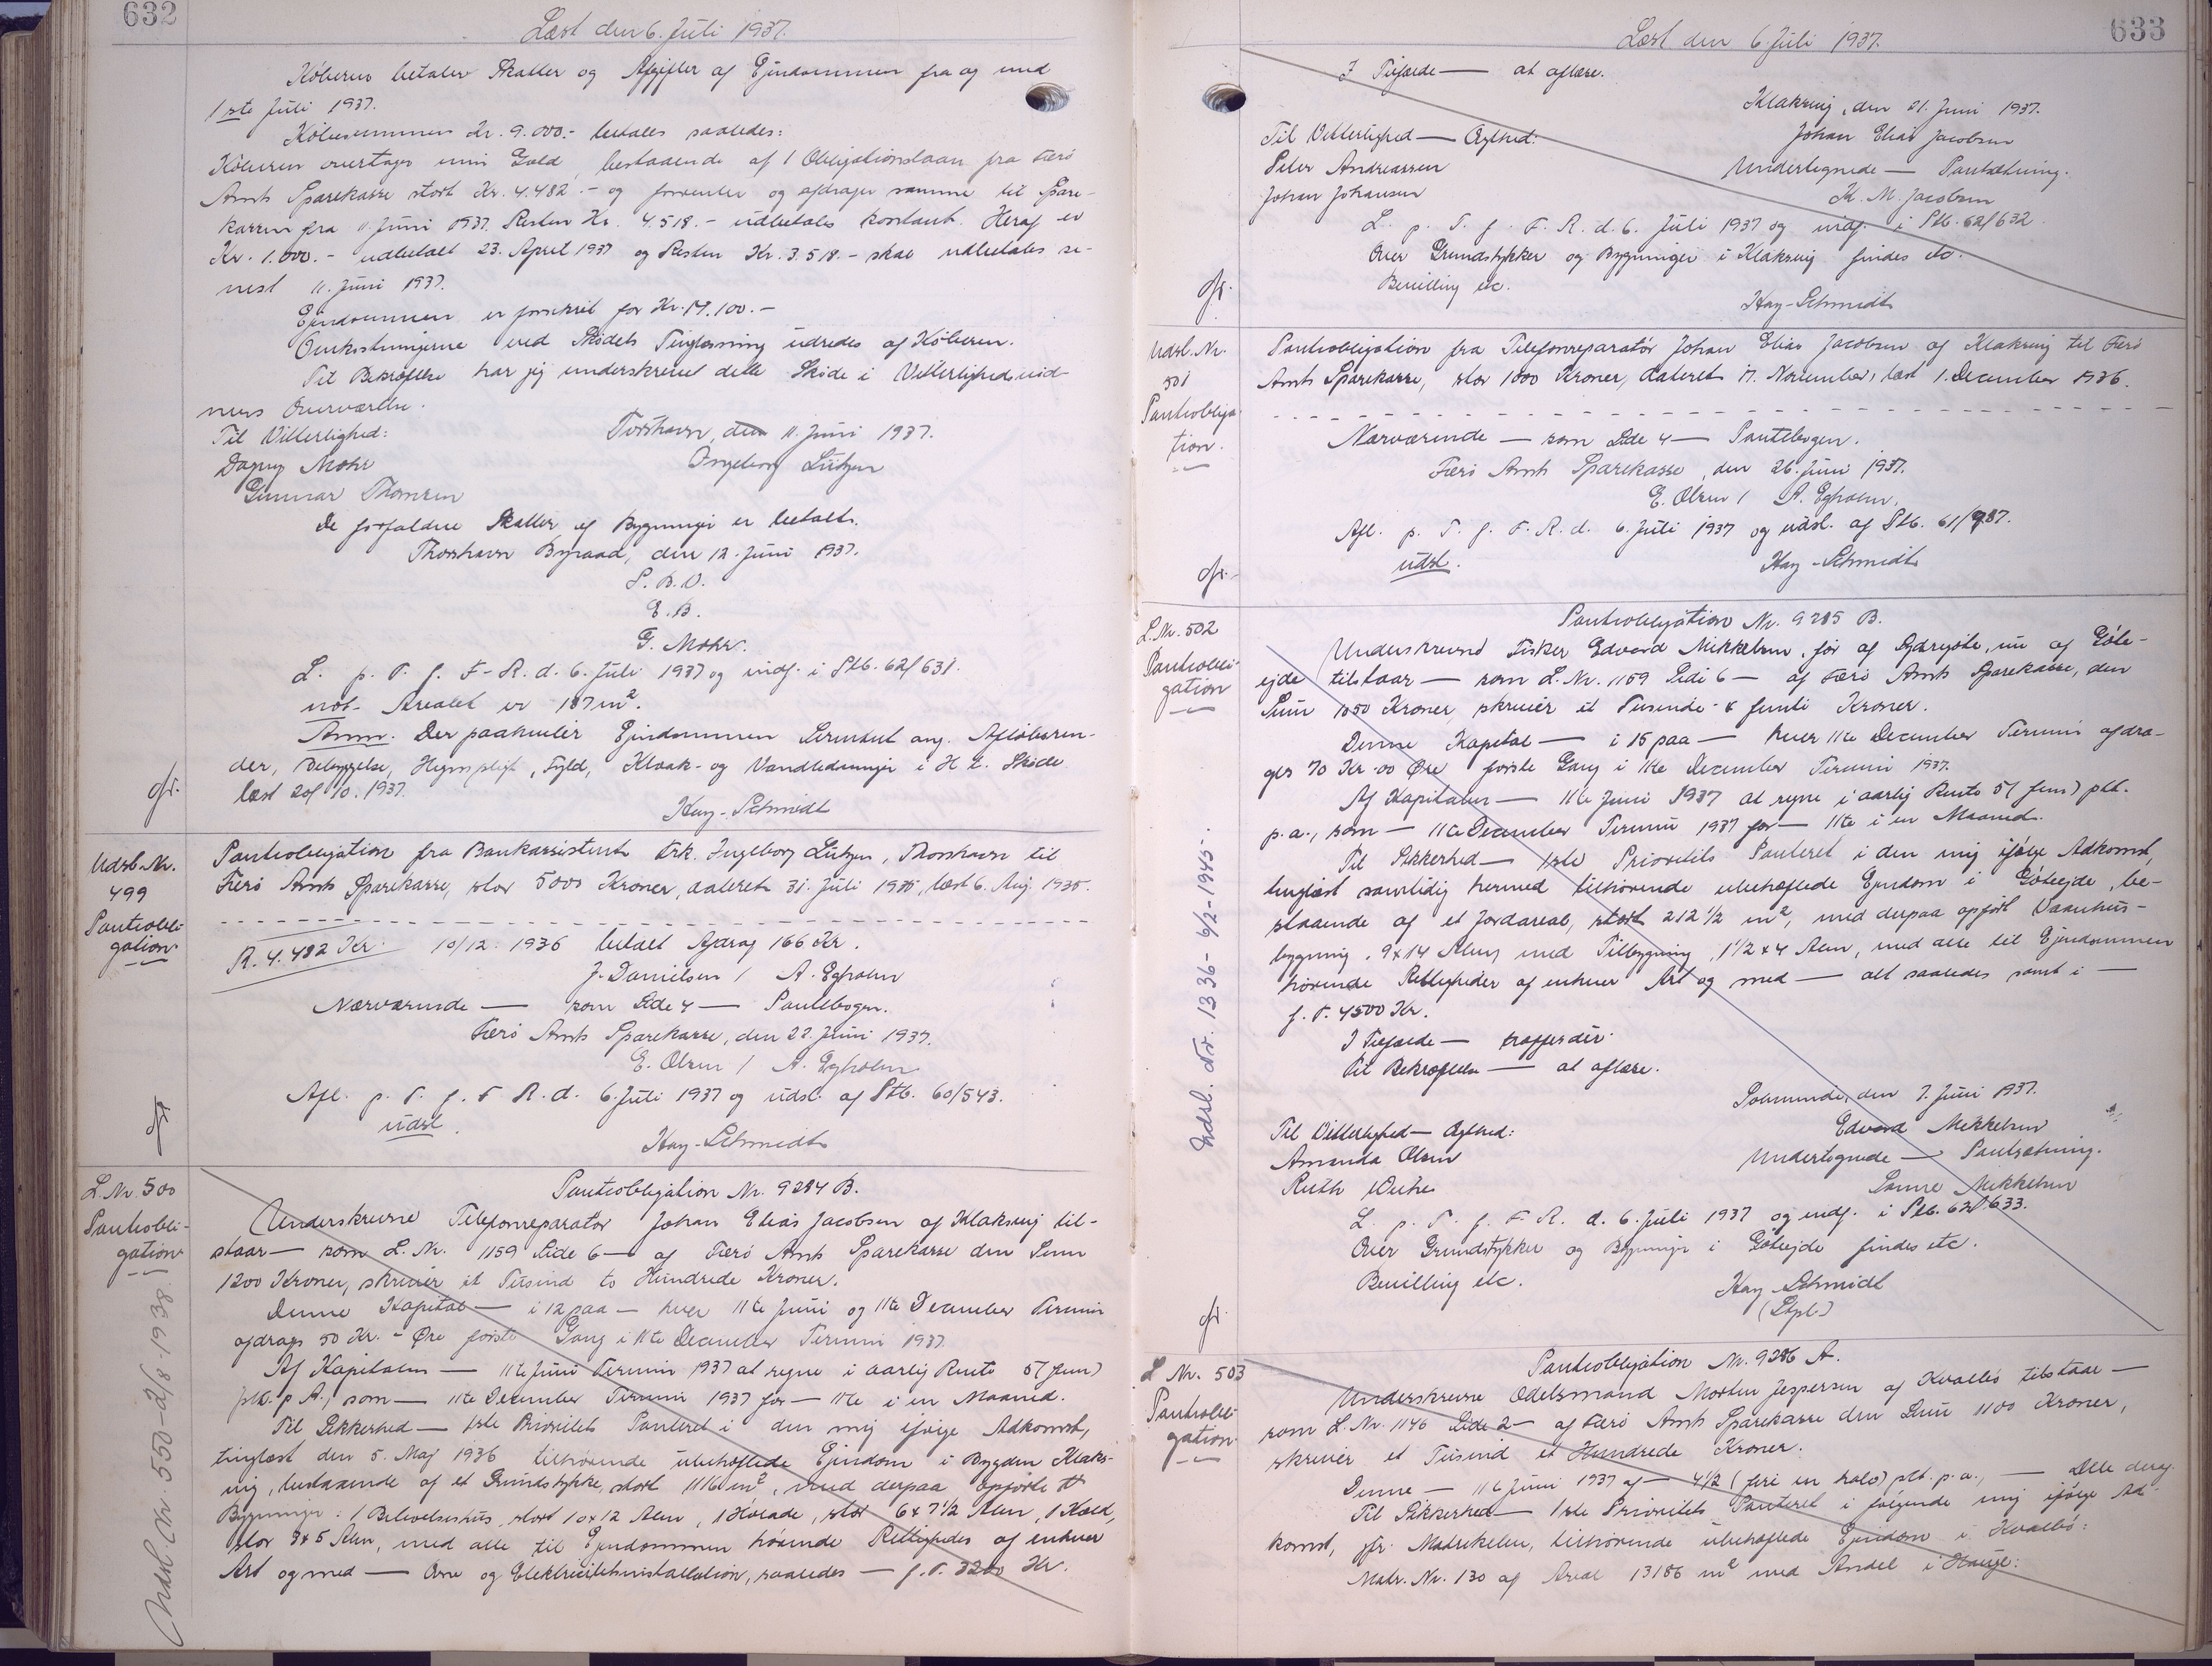 632
Læst den 6. Juli 1937.
Køberen betaler Skatter og Afgifter af Ejendommen fra og med
1ste Juli 1937.
Købesummen Kr. 9.000.- betales saaledes:
Køberen overtager min Gæld, bestaaende af 1 Obligationslaan fra Færø
Amts Sparekasse stort Kr. 4.482.- og forrenter og afdrager samme til Spare-
kassen fra 11 Juni 1937. Resten Kr. 4.518.- udbetales kontant. Heraf er
Kr. 1.000.- udbetalt 23. April 1937 og Resten Kr. 3.518.- skal udbetales se-
nest 11. Juni 1937.
Ejendommen er forsikret for Kr. 14.100.-
Omkostningerne ved Skødets Tinglæsning udredes af Køberen.
Til Bekræftelse har jeg underskrevet dette Skøde i Vitterlighedsvid-
ners Overværelse.
Til Vitterlighed: Tórshavn, den 11. Juni 1937.
Dagny Mohr Ingeborg Lützen
Gunnar Thomsen
De forfaldne Skatter af Bygninger er betalt.
Thorshavn Byraad, den 12. Juni 1937.
P. B. V.
E. B.
G. Mohr.
L. p. T. f. F. R. d. 6. Juli 1937 og indf. i Ptb. 62/631.
not. Arealet er 187 m².
Anm. Der paahviler Ejendommen Servitut ang. Afløbsren-
der, Bebyggelse, Hegnspligt, Fyld, Kloak- og Vandledninger i H. t. Skøde
læst 20/10. 1937.
Hay-Schmidt
Udsl. Nr.
499
Pantobli-
gation.
Pantobligation fra Bankassistent Frk. Ingeborg Lützen, Thorshavn til
Færø Amts Sparekasse, stor 5000 Kroner, dateret 31. Juli 1935, læst 6. Aug. 1935.
R. 4.482 Kr. 10/12. 1936 betalt Afdrag 166 Kr.
J. Danielsen / A. Egholm
Nærværende — som Side 4 — Pantebogen.
Færø Amts Sparekasse, den 22. Juni 1937.
E. Olsen / A. Egholm
Afl. p. T. f. F. R. d. 6. Juli 1937 og udsl. af Ptb. 60/543.
udsl.
Hay-Schmidt
L. Nr. 500
Pantobli-
gation
Udsl. Nr. 550 - 2/8 1938
Pantobligation Nr. 9284 B.
Underskrevne Telefonreparatør Johan Elias Jacobsen af Klaksvig til-
staar — som L. Nr. 1159 Side 6 — af Færø Amts Sparekasse den Sum
1200 Kroner, skriver et Tusind to Hundrede Kroner.
Denne Kapital — i 12 paa — hver 11te Juni og 11te December Termin
afdrages 50 Kr. - Øre første Gang i 11te December Termin 1937.
Af Kapitalen — 11te Juni Termin 1937 at regne i aarlig Rente 5 (fem)
pCt. p. A., som — 11te December Termin 1937 for — 11te i en Maaned.
Til Sikkerhed — 1ste Prioritets Panteret i den mig ifølge Adkomst,
tinglæst den 5. Maj 1936 tilhørende ubehæftede Ejendom i Bygden Klaks-
vig, bestaaende af et Grundstykke, stort 1116 m², med derpaa opførte
Bygninger: 1 Beboelseshus, stort 10 x 12 Alen, 1 Hølade, stor 6 x 7½ Alen, 1 Kæld,
stor 8 x 5 Alen, med alle til Ejendommen hørende Rettigheder af enhver
Art og med — Ovne og Elektricitetsinstallation, saaledes — f. T. 3200 Kr.
633
Læst den 6. Juli 1937.
I Tilfælde — at aflæse.
Klaksvig, den 21. Juni 1937.
Til Vitterlighed — Ægthed: Johan Elias Jacobsen
Peter Andreassen Undertegnede — Pantsætning.
Johan Johansen K. M. Jacobsen
L. p. T. f. F. R. d. 6. Juli 1937 og indf. i Ptb. 62/632
Over Grundstykker og Bygninger i Klaksvig findes etc.
Bevilling etc.
Hay-Schmidt
Udsl. Nr.
501
Pantobliga-
tion.
Pantobligation fra Telefonreparatør Johan Elias Jacobsen af Klaksvig til Færø
Amts Sparekasse, stor 1000 Kroner, dateret 17. November, læst 1. December 1936.
Nærværende — som Side 4 — Pantebogen.
Færø Amts Sparekasse, den 26. Juni 1937.
E. Olsen / A. Egholm.
Afl. p. T. f. F. R. d. 6. Juli 1937 og udsl. af Ptb. 61/987.
udsl.
Hay-Schmidt
L. Nr. 502
Pantobli-
gation
Udsl. Nr. 1336 - 6/2-1945.
Pantobligation Nr. 9285 B.
Underskrevne Fisker Edvard Mikkelsen, før af Sydregøte, nu af Gøte-
ejde tilstaar — som L. Nr. 1159 Side 6 — af Færø Amts Sparekasse, den
Sum 1050 Kroner, skriver et Tusinde & femti Kroner.
Denne Kapital — i 15 paa — hver 11te December Termin afdra-
ges 70 Kr. 00 Øre første Gang i 11te December Termin 1937.
Af Kapitalen — 11te Juni 1937 at regne i aarlig Rente 5 (fem) pCt.
p. a., som — 11te December Termin 1937 for — 11te i en Maaned.
Til Sikkerhed — 1ste Prioritets Panteret i den mig ifølge Adkomst,
tinglæst samtidig hermed tilhørende ubehæftede Ejendom i Gøteejde, be-
staaende af et Jordareal, stort 212½ m², med derpaa opført Vaanhus-
bygning, 9 x 14 Alen med Tilbygning, 1½ x 4 Alen, med alle til Ejendommen
hørende Rettigheder af enhver Art og med — alt saaledes samt i —
f. T. 4500 Kr.
I Tilfælde — træffes der.
Til Bekræftelse — at aflæse.
Solmunde, den 7. Juni 1937.
Til Vitterlighed — Ægthed: Edvard Mikkelsen
Amanda Olsen Undertegnede — Pantsætning.
Ruth Sanne Mikkelsen
L. p. T. f. F. R. d. 6. Juli 1937 og indf. i Ptb. 62/633.
Over Grundstykker og Bygninger i Gøteejde findes etc.
Bevilling etc.
Hay-Schmidt
(Stpl.)
L. Nr. 503
Pantobli-
gation
Pantobligation Nr. 9286 A.
Underskrevne Odelsmand Morten Jespersen af Kvalbø tilstaar —
som L. Nr. 1146 Side 2 — af Færø Amts Sparekasse den Sum 1100 Kroner,
skriver et Tusind et Hundrede Kroner.
Denne — 11te Juni 1937 af — 4½ (fire en halv) pCt. p. a., — Alle dereg.
Til Sikkerhed — 1ste Prioritets Panteret i følgende mig ifølge Ad-
komst, jfr. Matrikelen, tilhørende ubehæftede Ejendom i Kvalbø:
Matr. Nr. 130 af Areal 13186 m² med Andel i Hauge: